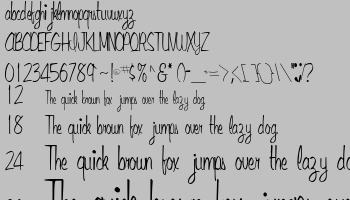 abcdefghijklmnopqrstuvwxyz
ABCDEFGHIJKLMNOPQRSTUVWXYZ
0123456789
12 The quick brown fox jumps over the lazy dog.
18 The quick brown fox jumps over the lazy dog.
24 The quick brown fox jumps over the lazy do